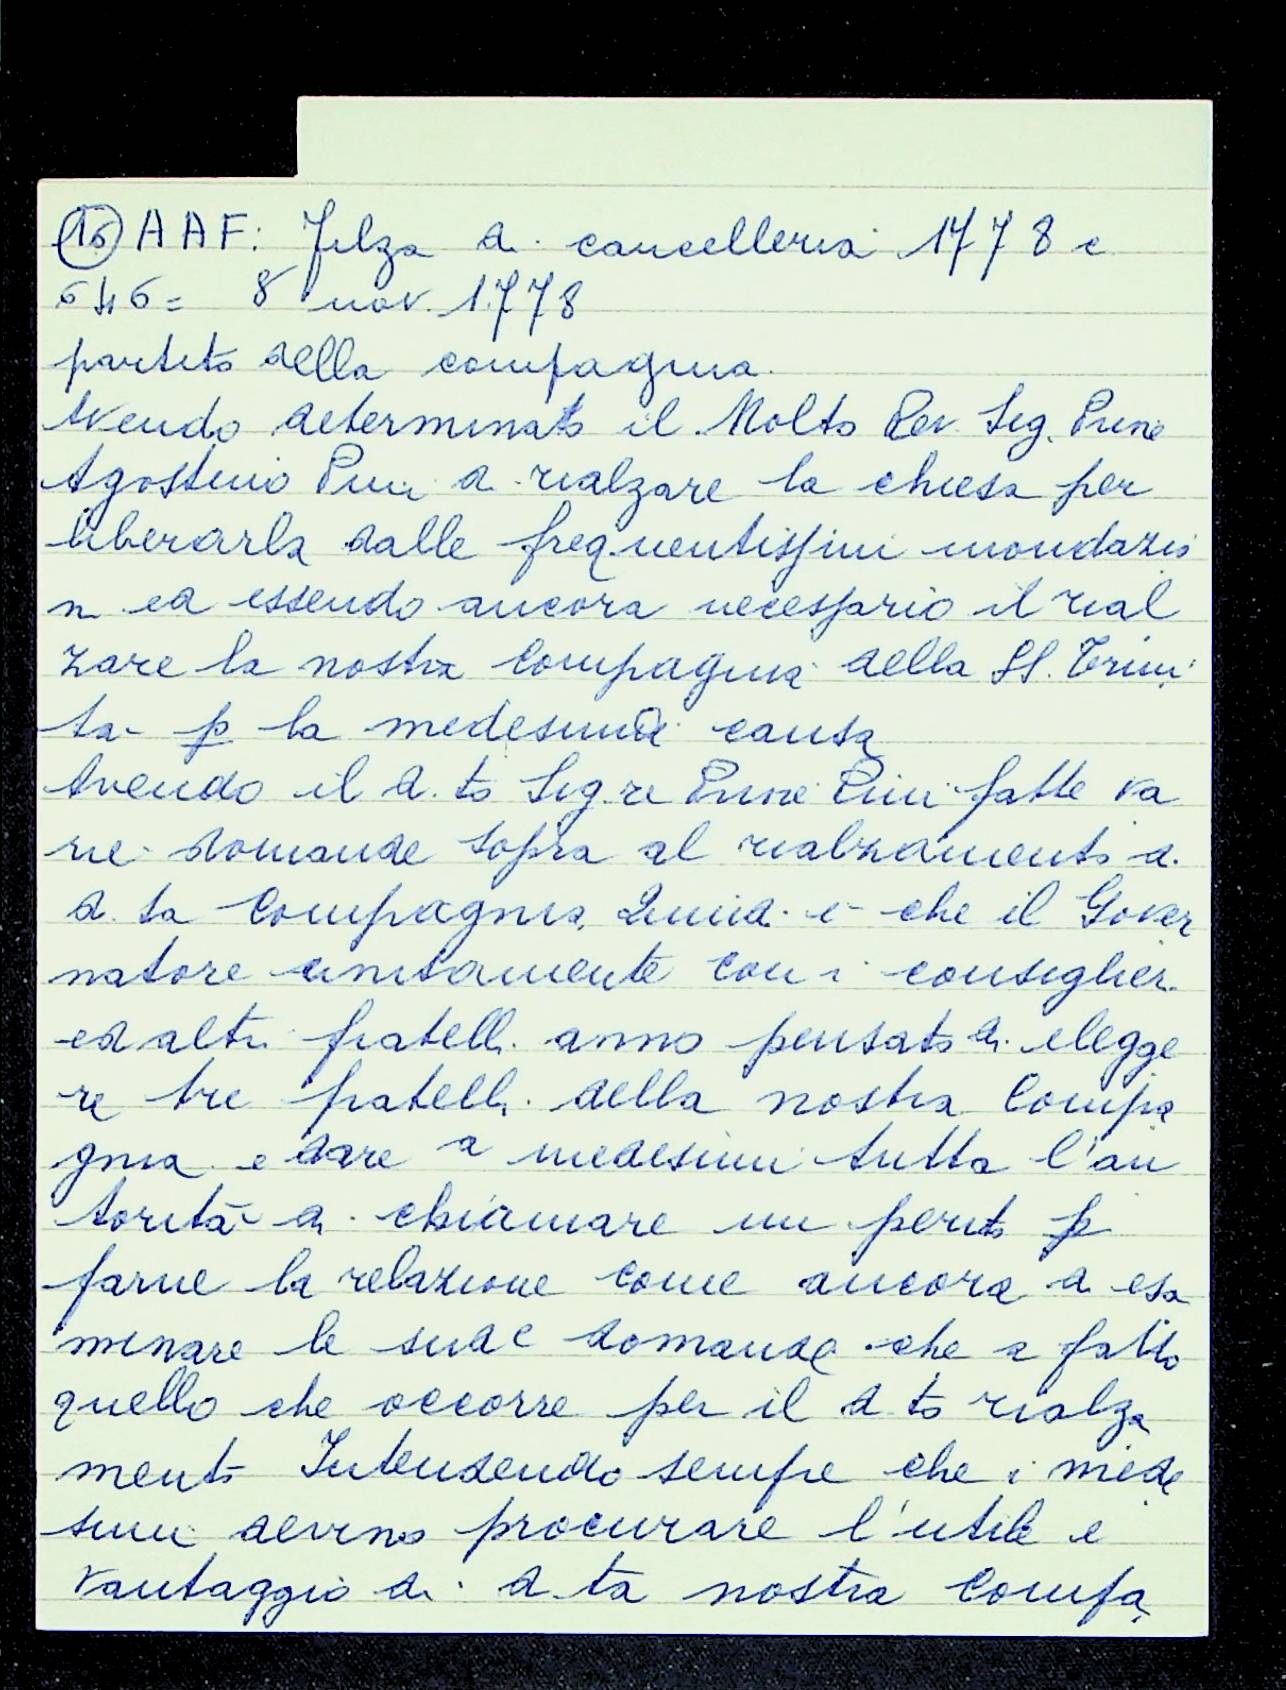 16 AAF: Filza di cancelleria 1778 c
646= 8 nov. 1778
partito della compagnia.
Avendo determinato il Molto Rev. Sig. Priore
Agostino Pini di rialzare la chiesa per
liberarla dalle frequentissimi inondazio
ni ed essendo ancora necessario il rial
zare la nostra Compagnia della SS. Trini
ta- p la medesima causa
Avendo il d. to Sig. re Priore Pini fatte va
rie domande sopra al rialzamento di
d. ta Compagnia, è che il Gover
natore unitamente con i consiglieri
ed altri fratelli anno pensato di elegge
re tre fratelli della nostra Compa
gnia e dare a medesimi tutta l'au
torità di chiamare un perito p
farne la relazione come ancora di esa
minare le sud e domande che a fatto
quello che occorre per il d to rialza
mento Intendendo sempre che i mede
simi devino procurare l'utile e
vantaggio di d. ta nostra Compa